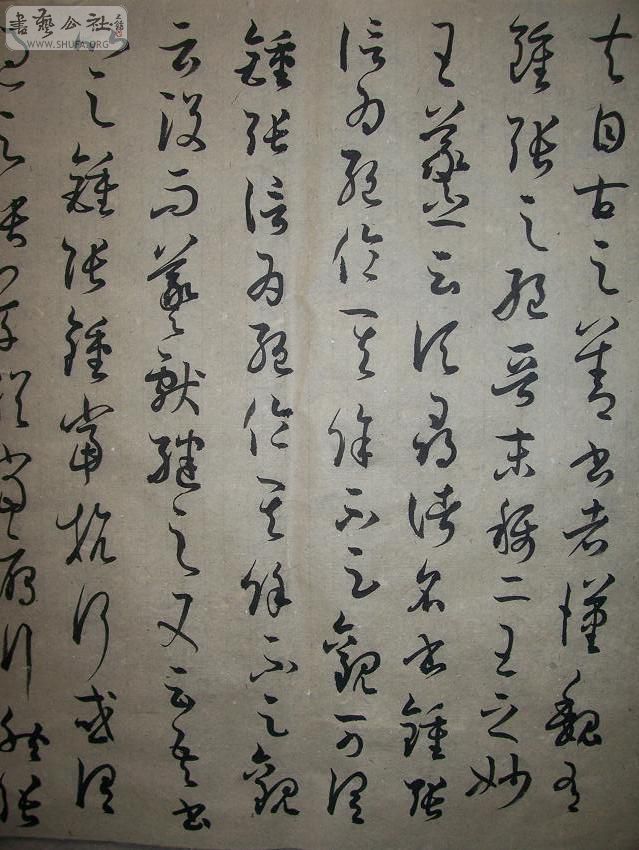 夫自古之善書者漢魏有
鍾張之絕晉末稱二王之妙
王羲之云頃尋諸名書鍾張
信為絕倫其餘不足觀可謂
鍾張信為絕倫其餘不足觀
云沒而羲獻繼之又云吾書
比之鍾張鍾當抗行或謂
過之張草猶當雁行然張
書藝公社
WWW.SHUFA.ORG